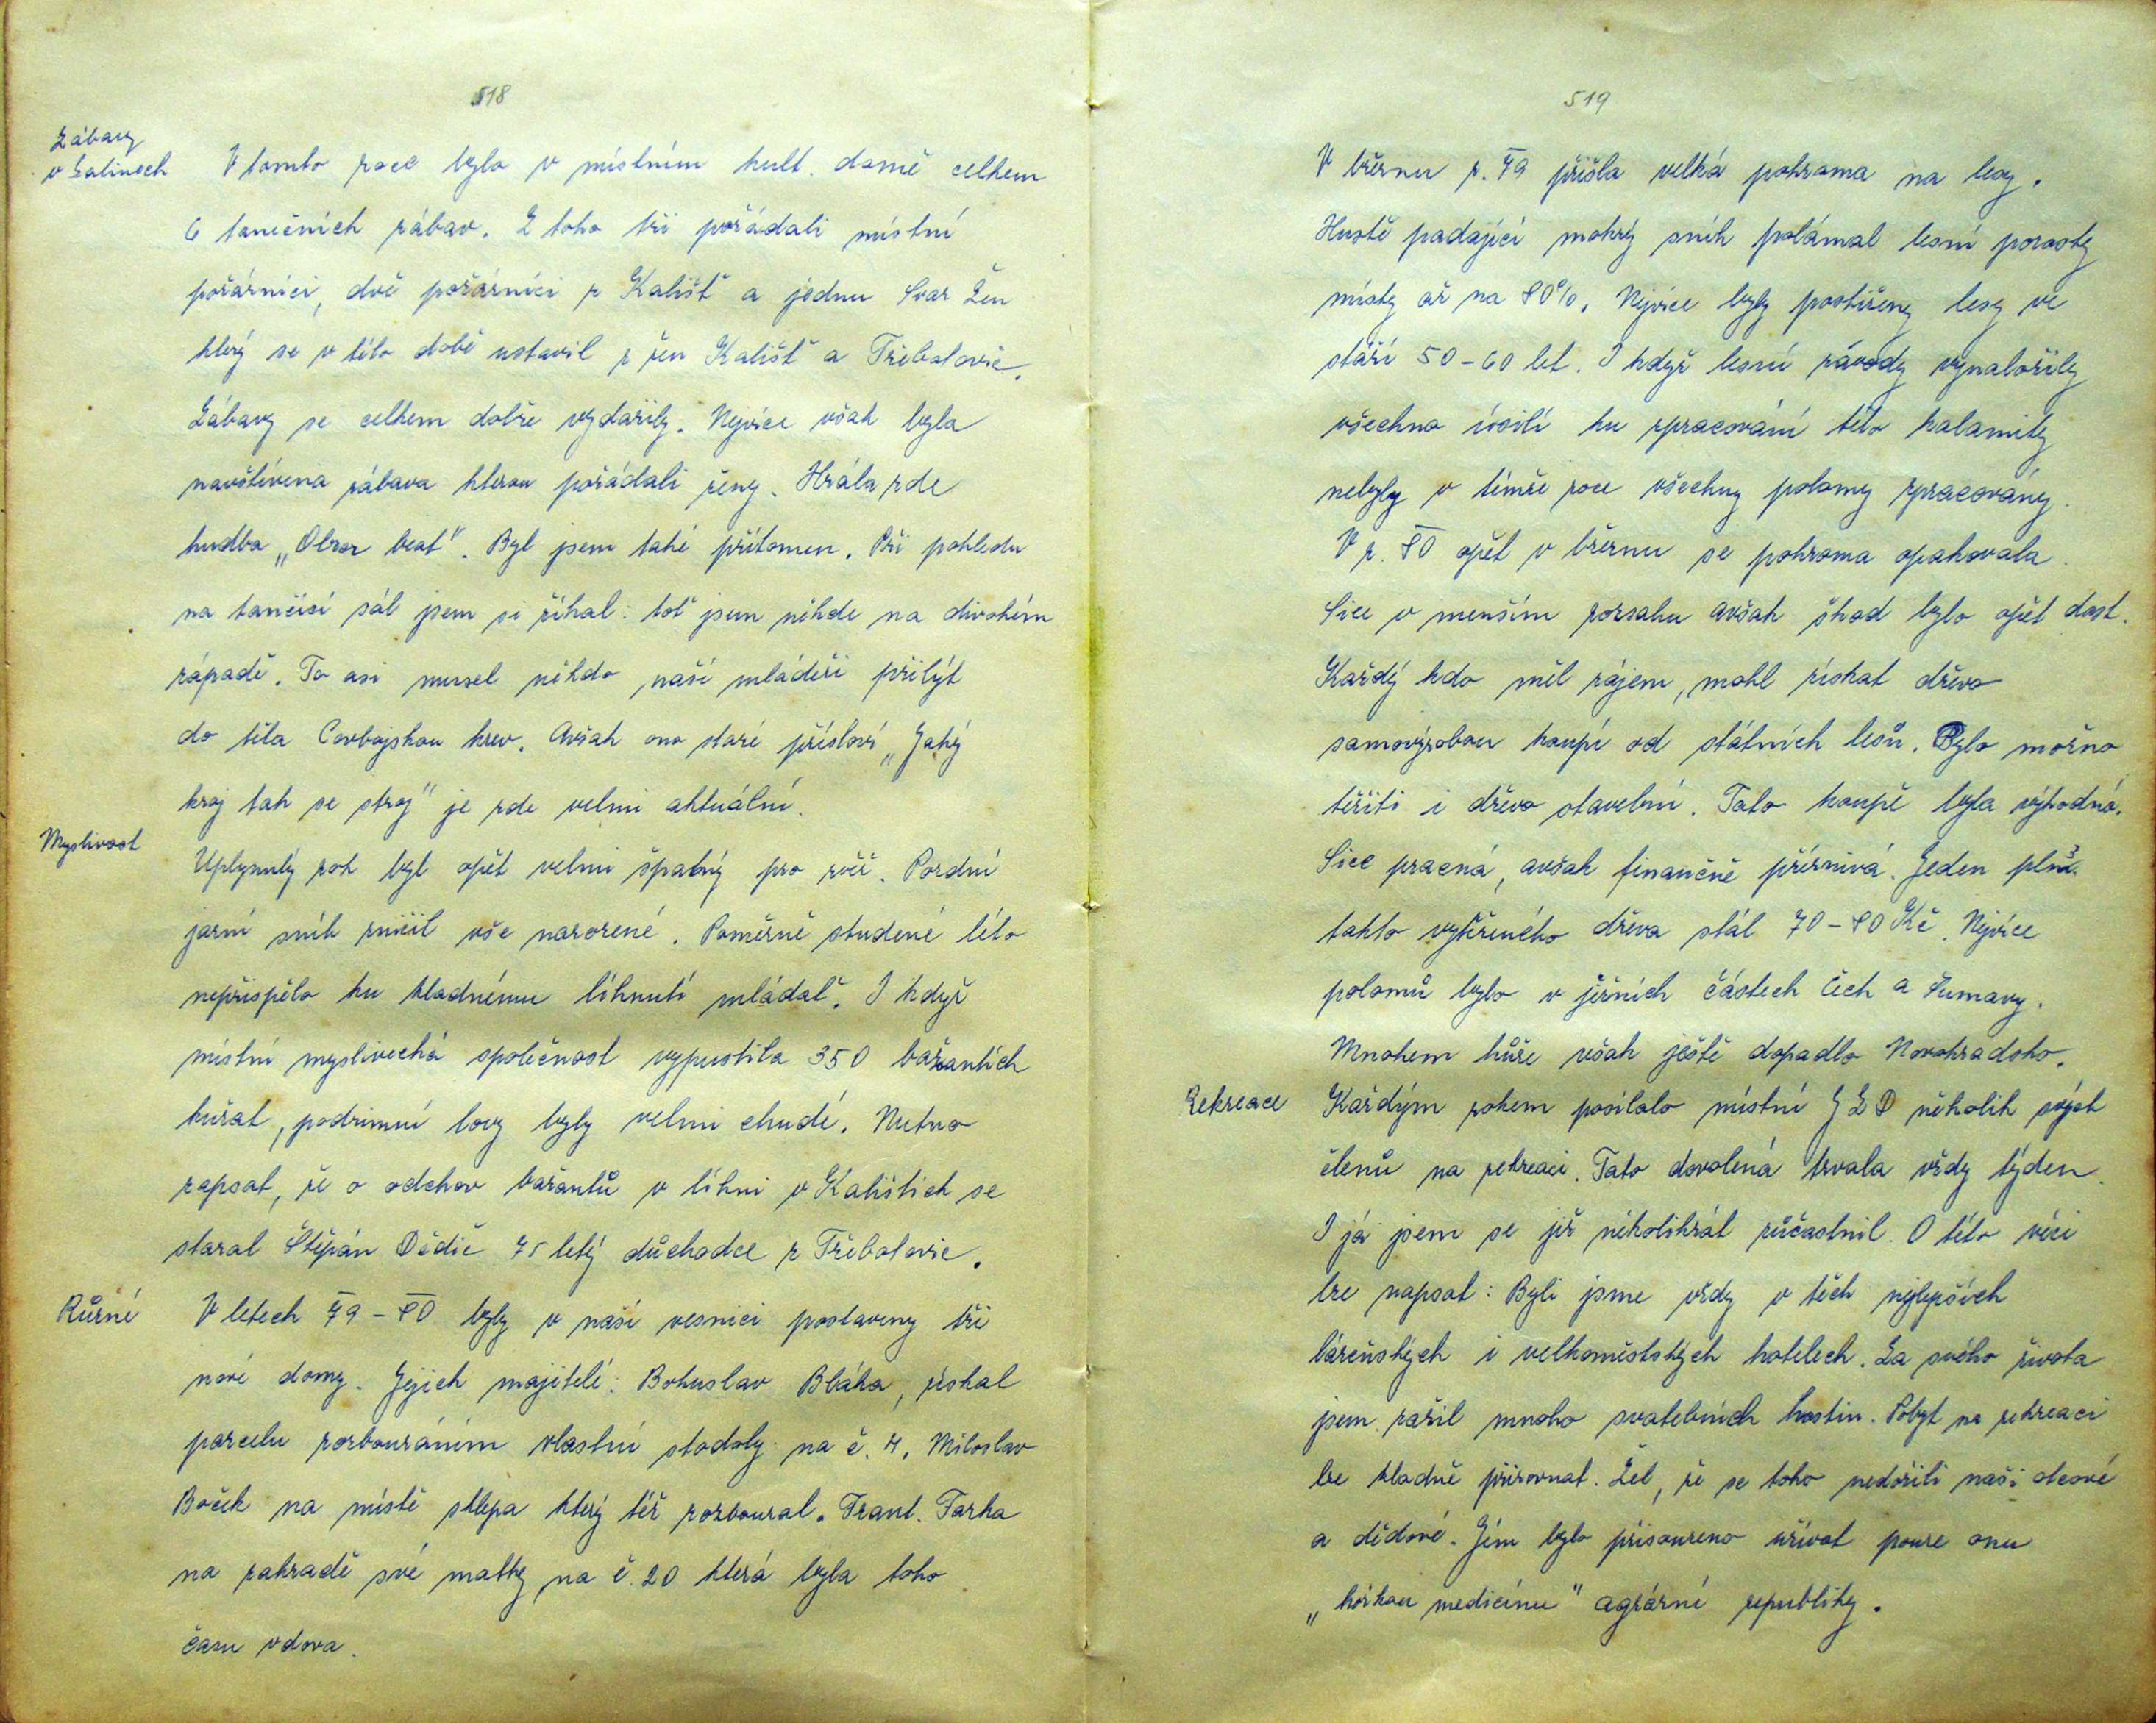 518
Zábavy
v Salinech
V tomto roce bylo v místním kult. domě celkem
6 tanečních zábav. Z toho tři pořádali místní
požárníci, dvě požárníci z Kališť a jednu Svaz Žen
který se v této době ustavil z žen Kališť a Třebolovic.
Zábavy se celkem dobře vydařily. Nejvíce však byla
navštívena zábava kterou pořádali ženy. Hrála zde
hudba „Obzor beat“. Byl jsem také přítomen. Při pohledu
na tančící sál jsem si říkal: toť jsem někde na divokém
západě. To asi musel někdo naší mládeži přilýt
do těla Covbojskou krev. Avšak ono staré přísloví „Jaký
kroj tak se stroj“ je zde velmi aktuální.
Myslivost
Uplynulý rok byl opět velmi špatný pro zvěř. Pozdní
jarní sníh zničil vše narozené. Poměrně studené léto
nepřispělo ku kladnému líhnutí mláďat. I když
místní myslivecká společnost vypustila 350 bažantích
kuřat, podzimní lovy byly velmi chudé. Nutno
zapsat, že o odchov bažantů v líhni v Kalištích se
staral Štěpán Dědič 75 letý důchodce z Třebolovic.
Různé
V letech 79 – 80 byly v naší vesnici postaveny tři
nové domy. Jejich majitelé: Bohuslav Bláha, získal
parcelu rozbouráním vlastní stodoly na č. 4. Miloslav
Boček na místě sklepa který též rozboural. Frant. Tarka
na zahradě své matky na č. 20 která byla toho
času vdova.
519
V březnu r. 79 přišla velká pohroma na lesy.
Hustě padající mokrý sníh polámal lesní porosty
místy až na 80%. Nejvíce byly postiženy lesy ve
stáří 50 – 60 let. I když lesní závody vynaložily
všechno úsilí ku zpracování této kalamity
nebyly v témže roce všechny polomy zpracovány.
V r. 80 opět v březnu se pohroma opakovala.
Sice v menším rozsahu avšak škod bylo opět dost.
Každý kdo měl zájem, mohl získat dřevo
samovýrobou koupí od státních lesů. Bylo možno
těžiti i dřevo stavební. Tato koupě byla výhodná.
Sice pracná, avšak finančně příznivá. Jeden plm³
takto vytěženého dřeva stál 70 – 80 Kč. Nejvíce
polomů bylo v jižních částech Čech a Šumavy.
Mnohem hůře však ještě dopadlo Novohradsko.
Rekreace
Každým rokem posílalo místní JZD několik svých
členů na rekreaci. Tato dovolená trvala vždy týden.
I já jsem se již několikrát zúčastnil. O této věci
lze napsat: Byli jsme vždy v těch nejlepších
lázeňských i velkoměstských hotelech. Za svého života
jsem zažil mnoho svatebních hostin. Pobyt na rekreaci
lze kladně přirovnat. Žel, že se toho nedožili naši otcové
a dědové. Jim bylo přisouzeno užívat pouze onu
„hořkou medicínu“ agrární republiky.